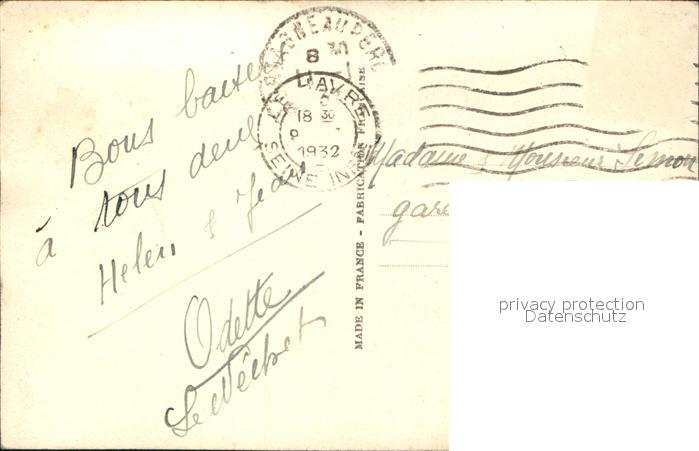 Bons baisers
à tous deux
Helen & Jean
Odette
LE HAVRE
8 30
18 30
9
1932
SEINE INF
MADE IN FRANCE - FABRICATION FRANÇAISE
Madame & Monsieur Simon
gare
privacy protection
Datenschutz